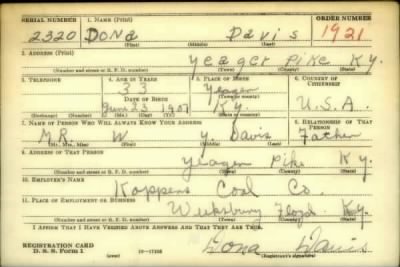 SERIAL NUMBER 1. NAME (Print) ORDER NUMBER
2320 Dona Davis 1921
(First) (Middle) (Last)
2. ADDRESS (Print)
Yeager Pike Ky.
(Number and street or R. F. D. number) (Town) (County) (State)
3. TELEPHONE 4. AGE IN YEARS 5. PLACE OF BIRTH 6. COUNTRY OF CITIZENSHIP
33 Yeager
DATE OF BIRTH (Town or county)
June 23 1907 Ky. U.S.A.
(Mo.) (Day) (Yr.) (State or country)
7. NAME OF PERSON WHO WILL ALWAYS KNOW YOUR ADDRESS 8. RELATIONSHIP OF THAT PERSON
MR. W Y. Davis Father
(Mr., Mrs., Miss) (First) (Middle) (Last)
9. ADDRESS OF THAT PERSON
Yeager Pike Ky.
(Number and street or R. F. D. number) (Town) (County) (State)
10. EMPLOYER'S NAME
Koppens Coal Co.
11. PLACE OF EMPLOYMENT OR BUSINESS
Weeksbury Floyd Ky.
(Number and street or R. F. D. number) (Town) (County) (State)
I AFFIRM THAT I HAVE VERIFIED ABOVE ANSWERS AND THAT THEY ARE TRUE.
REGISTRATION CARD
D. S. S. Form 1 (over) Dona Davis
(Registrant's signature)